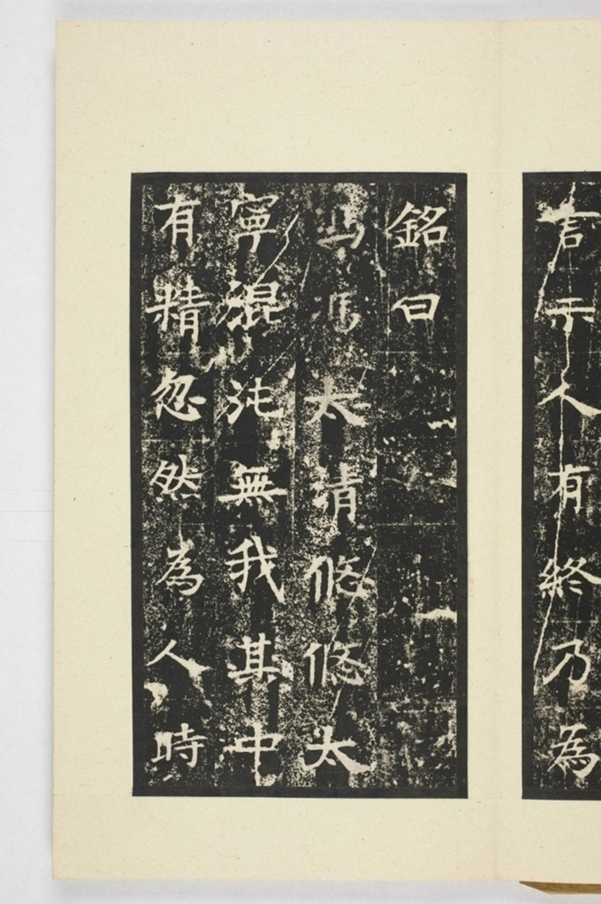 言示人有終乃為
銘曰
太清悠悠太
寧混沌無我其中
有精忽然為人時